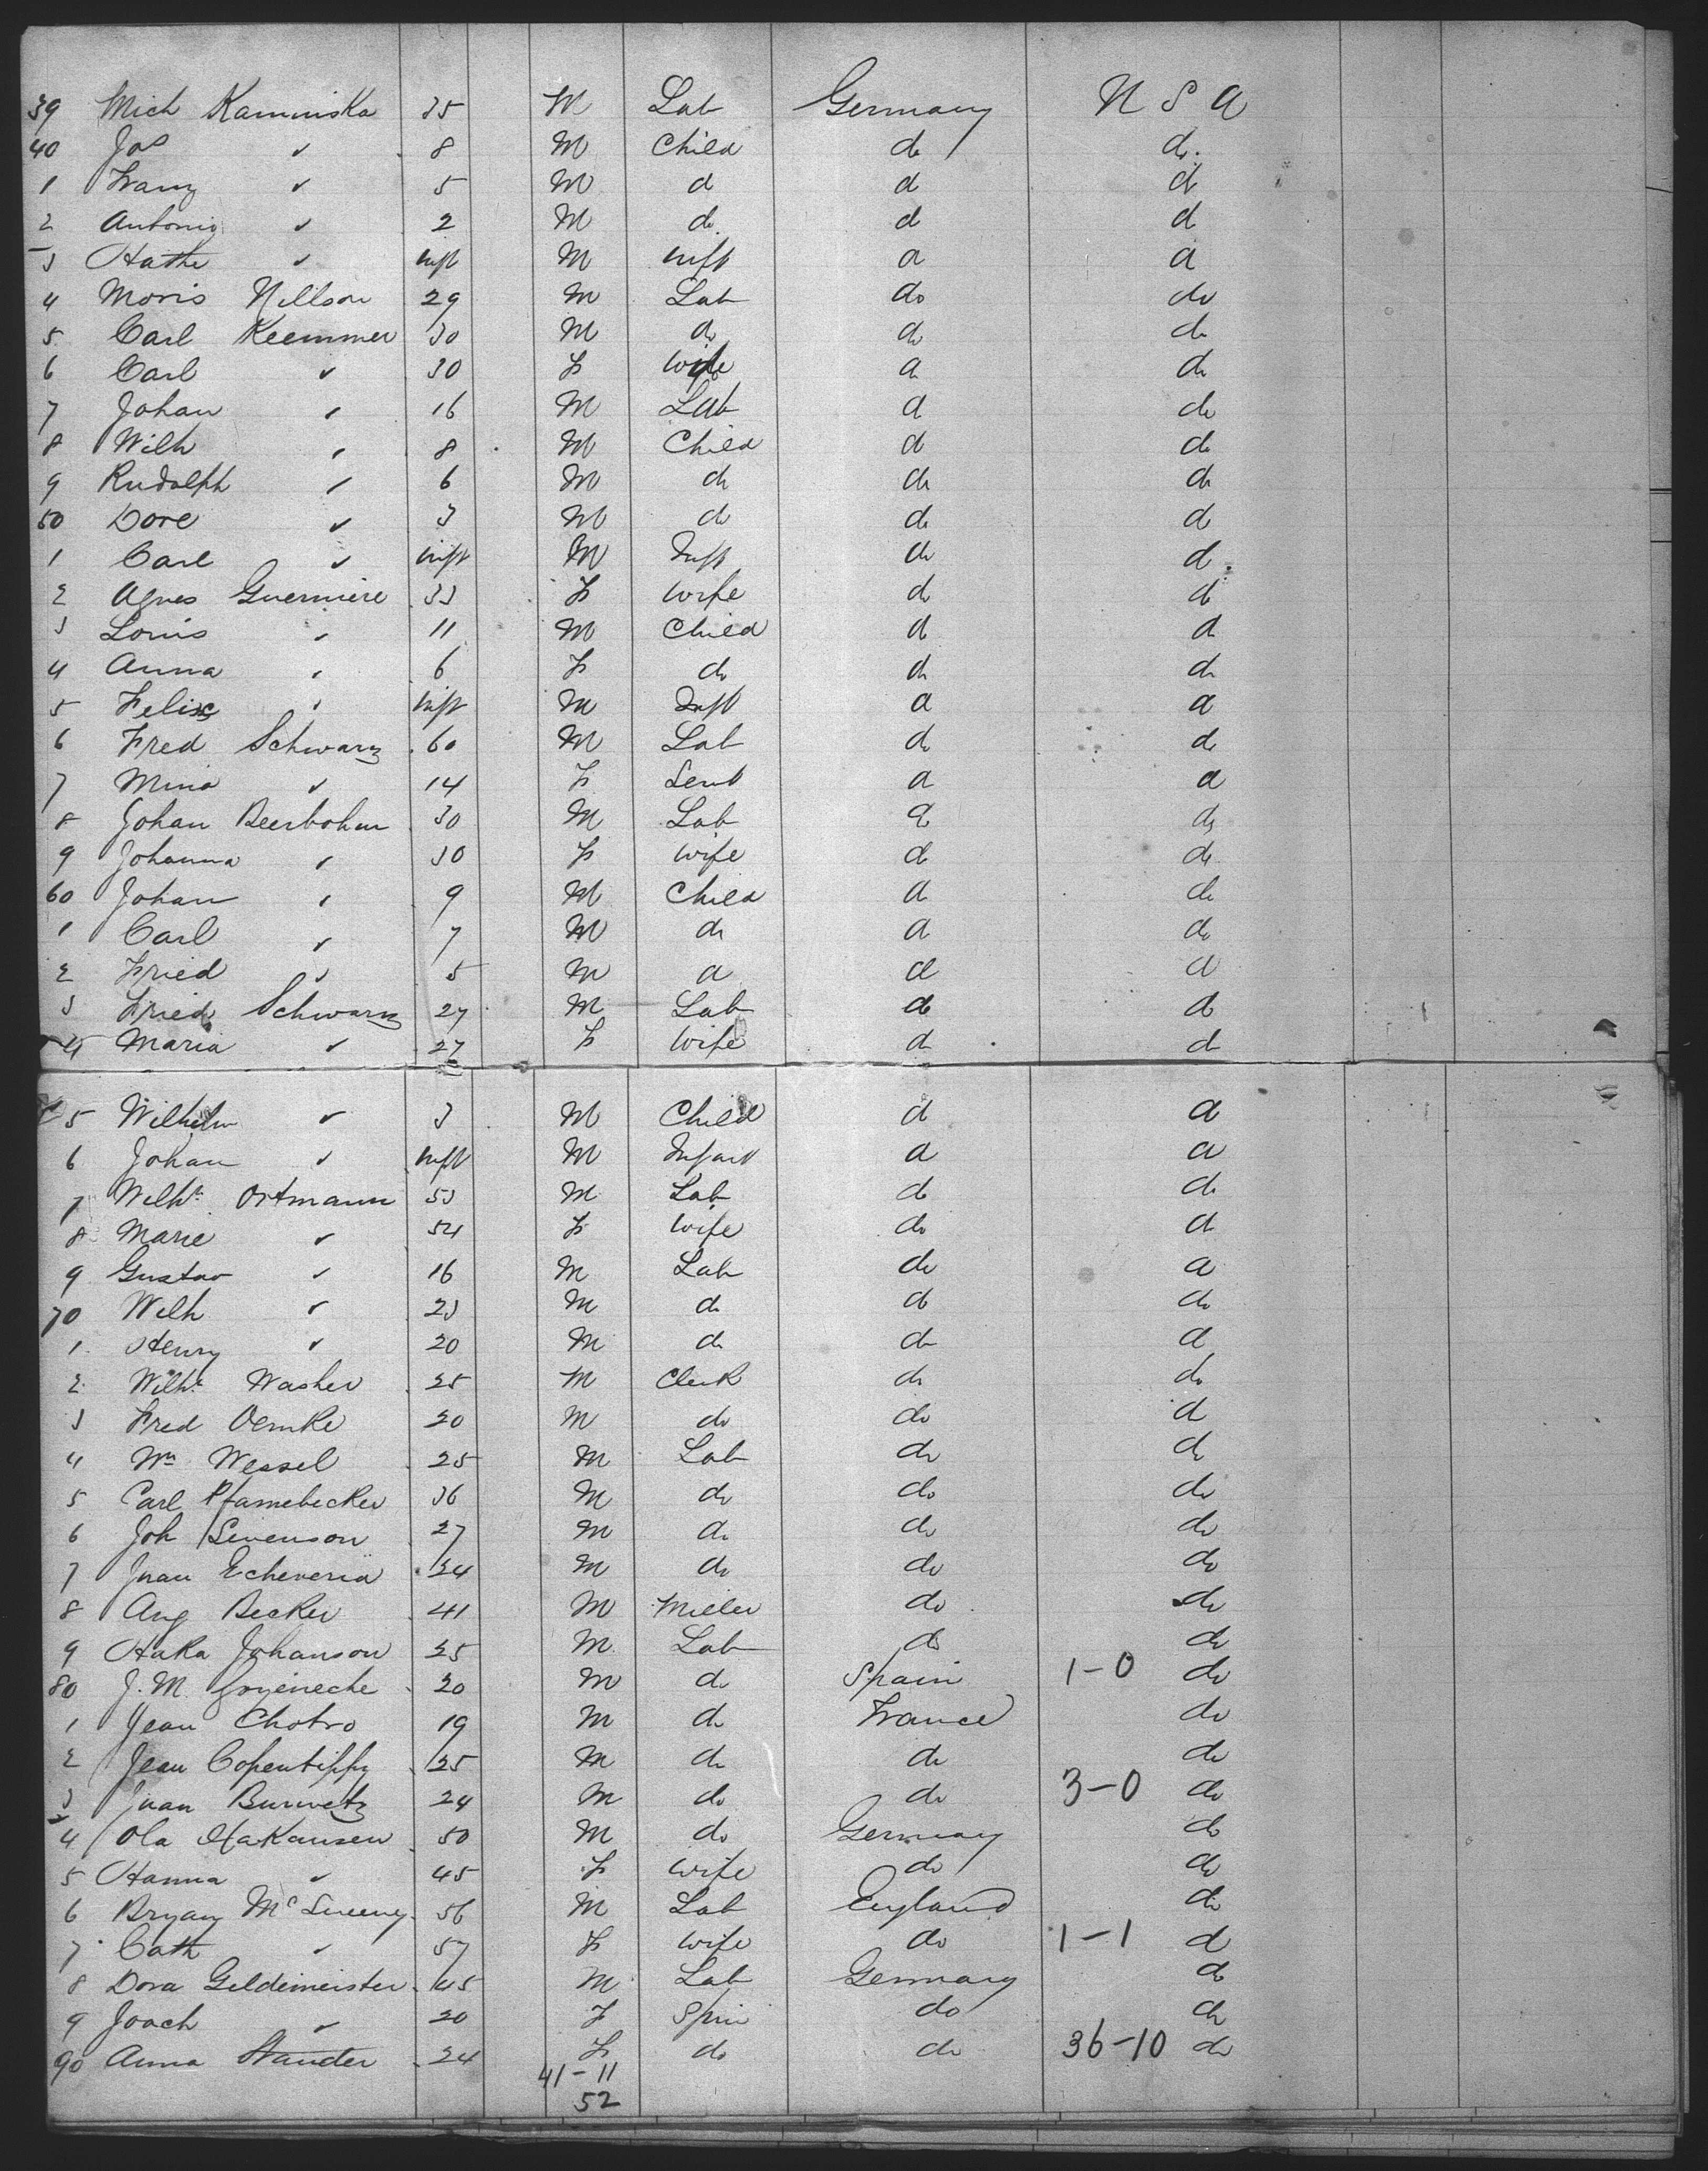 39 Mich Kaminska 35 M Lab Germany U S A
40 Jos " 8 M Child do do
1 Franz " 5 M do do do
2 Antonio " 2 M do do do
3 Kathe " inft M inft do do
4 Moris Nillson 29 M Lab do do
5 Carl Kemmer 30 M do do do
6 Carl " 30 F Wife do do
7 Johan " 16 M Lab do do
8 Wilh " 8 M Child do do
9 Rudolph " 6 M do do do
50 Dore " 3 M do do do
1 Carl " inft M Inft do do
2 Agnes Guerniere 33 F Wife do do
3 Louis " 11 M Child do do
4 Anna " 6 F do do do
5 Felix " inft M Inft do do
6 Fred Schwarz 60 M Lab do do
7 Mina " 14 F Servt do do
8 Johan Beerbohm 30 M Lab do do
9 Johanna " 30 F Wife do do
60 Johan " 9 M Child do do
1 Carl " 7 M do do do
2 Fried " 5 M do do do
3 Fried Schwarz 27 M Lab do do
4 Maria " 27 F Wife do do
5 Wilhelm " 3 M Child do do
6 Johan " inft M Infant do do
7 Wilh Ortmann 53 M Lab do do
8 Marie " 54 F Wife do do
9 Gustav " 16 M Lab do do
70 Wilh " 23 M do do do
1 Henry " 20 M do do do
2 Wilh Washer 25 M Clerk do do
3 Fred Oemke 20 M do do do
4 Wm Wessel 25 M Lab do do
5 Carl Pfamebecker 36 M do do do
6 Joh Sevenson 27 M do do do
7 Juan Echeveria 24 M do do do
8 Aug Becker 41 M Miller do do
9 Haka Johanson 25 M Lab do do
80 J. M. Goyeneche 20 M do Spain 1-0 do
1 Jean Chotro 19 M do France do
2 Jean Copentippy 25 M do do do
3 Juan Burwetz 24 M do do 3-0 do
4 Ola Hakansen 50 M do Germany do
5 Hanna " 45 F Wife do do
6 Bryan McSweeny 56 M Lab England do
7 Cath " 57 F Wife do 1-1 do
8 Dora Geldemeister 45 M Lab Germany do
9 Joach " 20 F Spin do do
90 Anna Stander 24 F do do 36-10 do
41-11
52